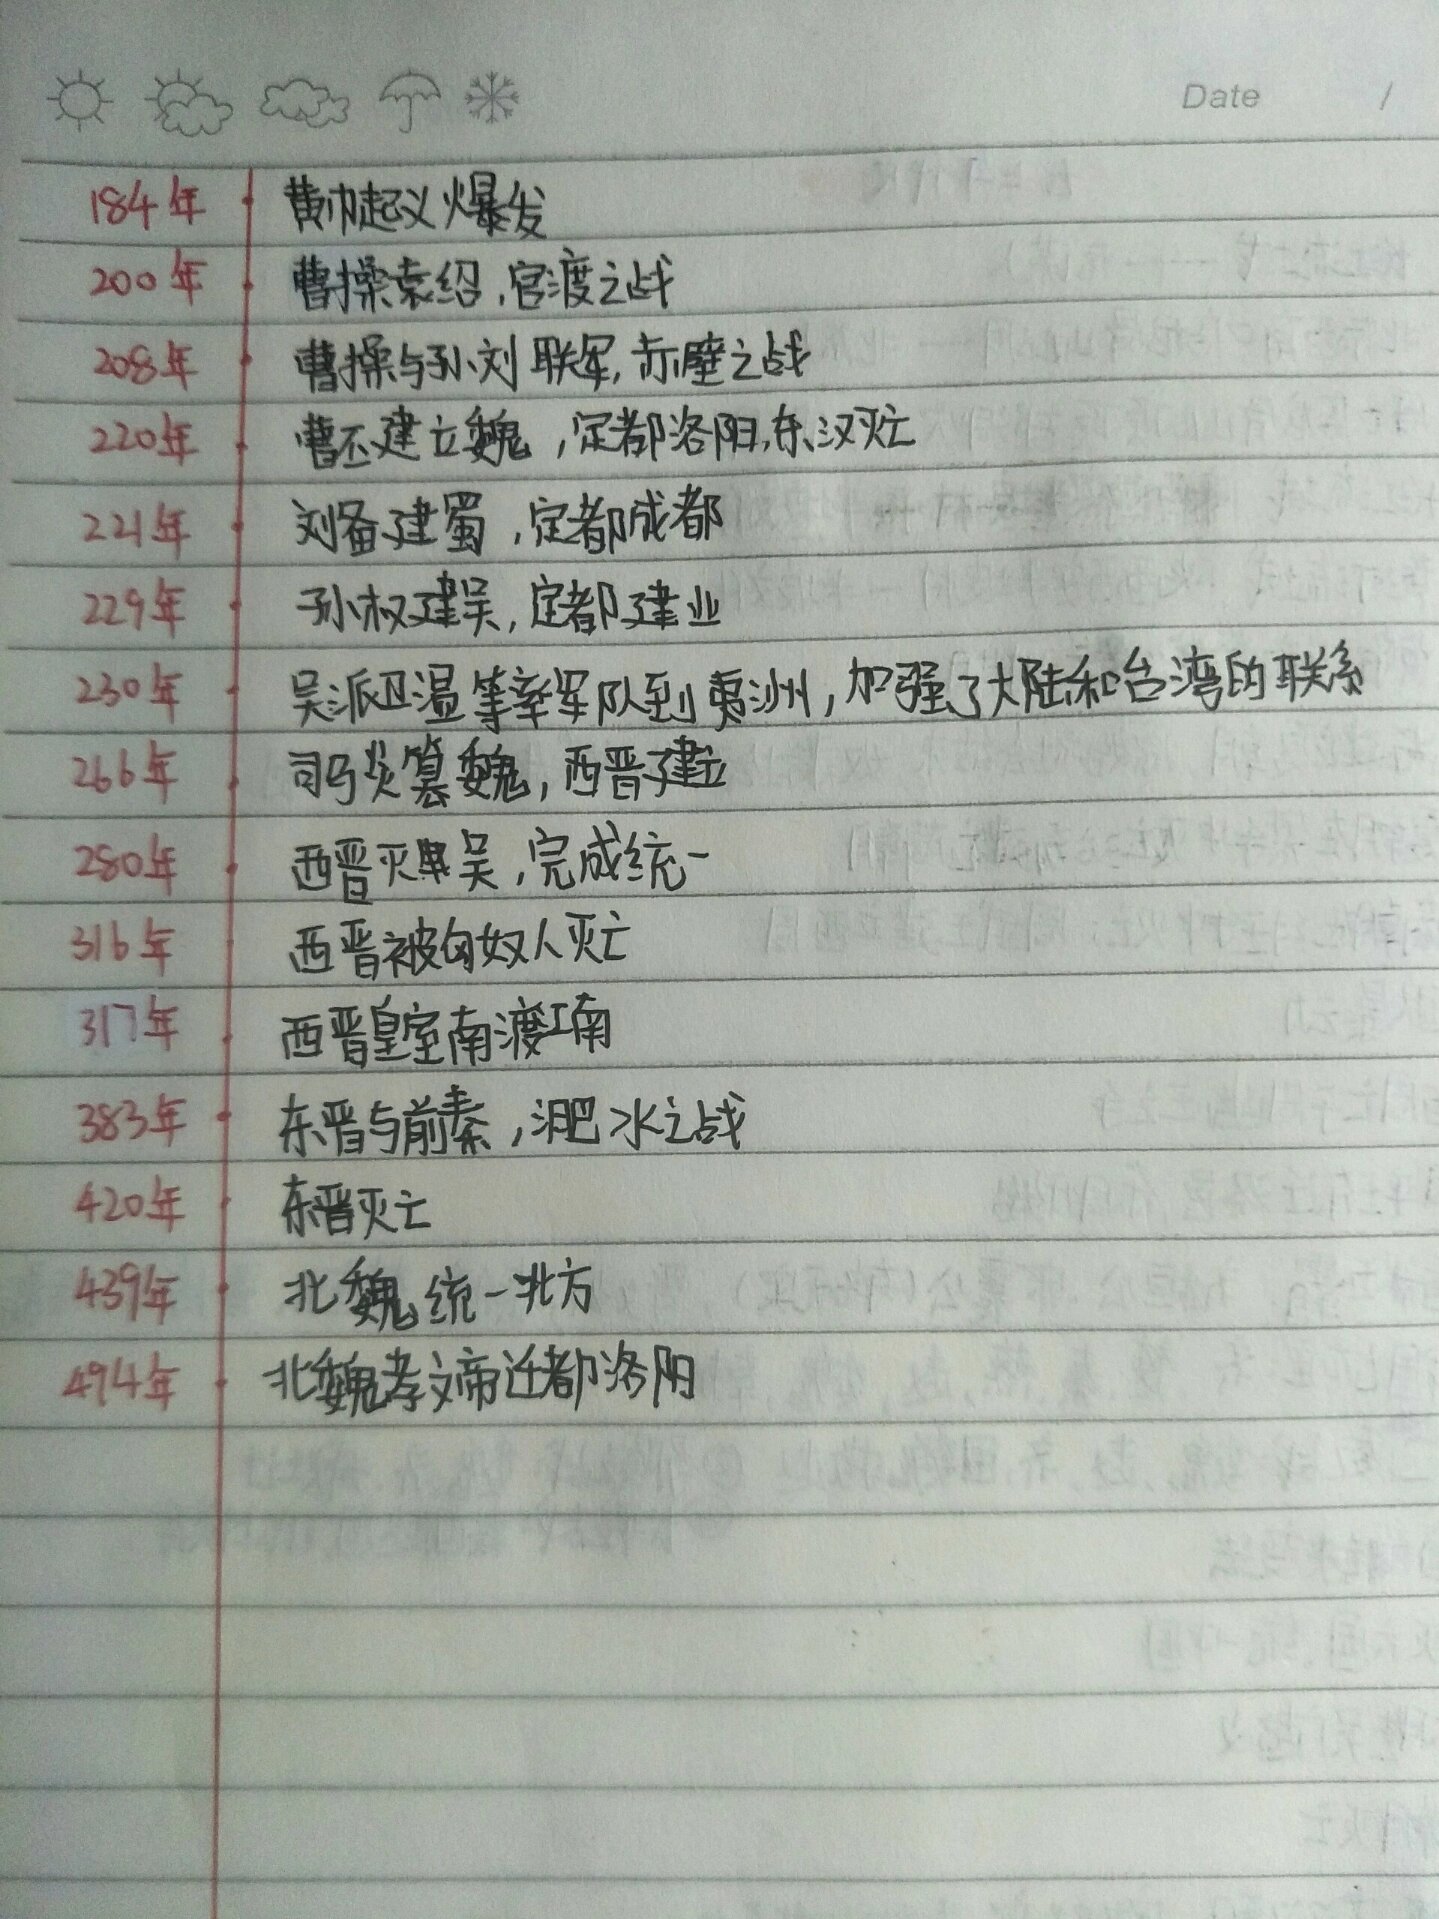 Date /
184年 黄巾起义爆发
200年 曹操袁绍,官渡之战
208年 曹操与孙刘联军,赤壁之战
220年 曹丕建立魏,定都洛阳,东汉灭亡
221年 刘备建蜀,定都成都
229年 孙权建吴,定都建业
230年 吴派卫温等率军队到夷洲,加强了大陆和台湾的联系
266年 司马炎篡魏,西晋建立
280年 西晋灭吴,完成统一
316年 西晋被匈奴人灭亡
317年 西晋皇室南渡江南
383年 东晋与前秦,淝水之战
420年 东晋灭亡
439年 北魏统一北方
494年 北魏孝文帝迁都洛阳